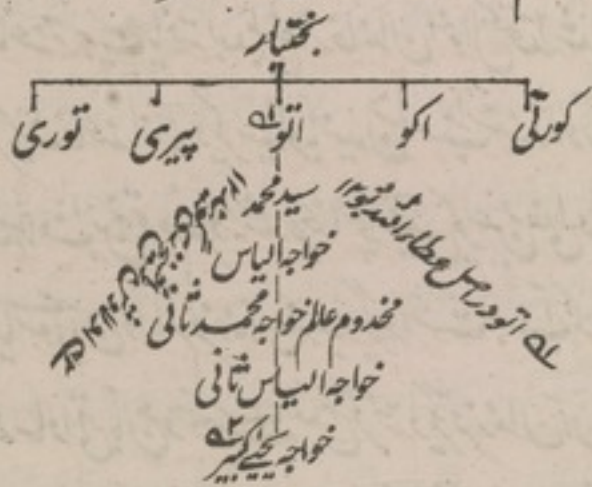 بختیار
کورتی اکو اتو ؎۱ پیری توری
سید محمد
خواجہ الیاس
مخدوم عالم خواجہ محمد ثانی
خواجہ الیاس ثانی
خواجہ یحییٰ کبیر ؎۲
؎۱ اتو در اصل عطاء اللہ بود ۱۲